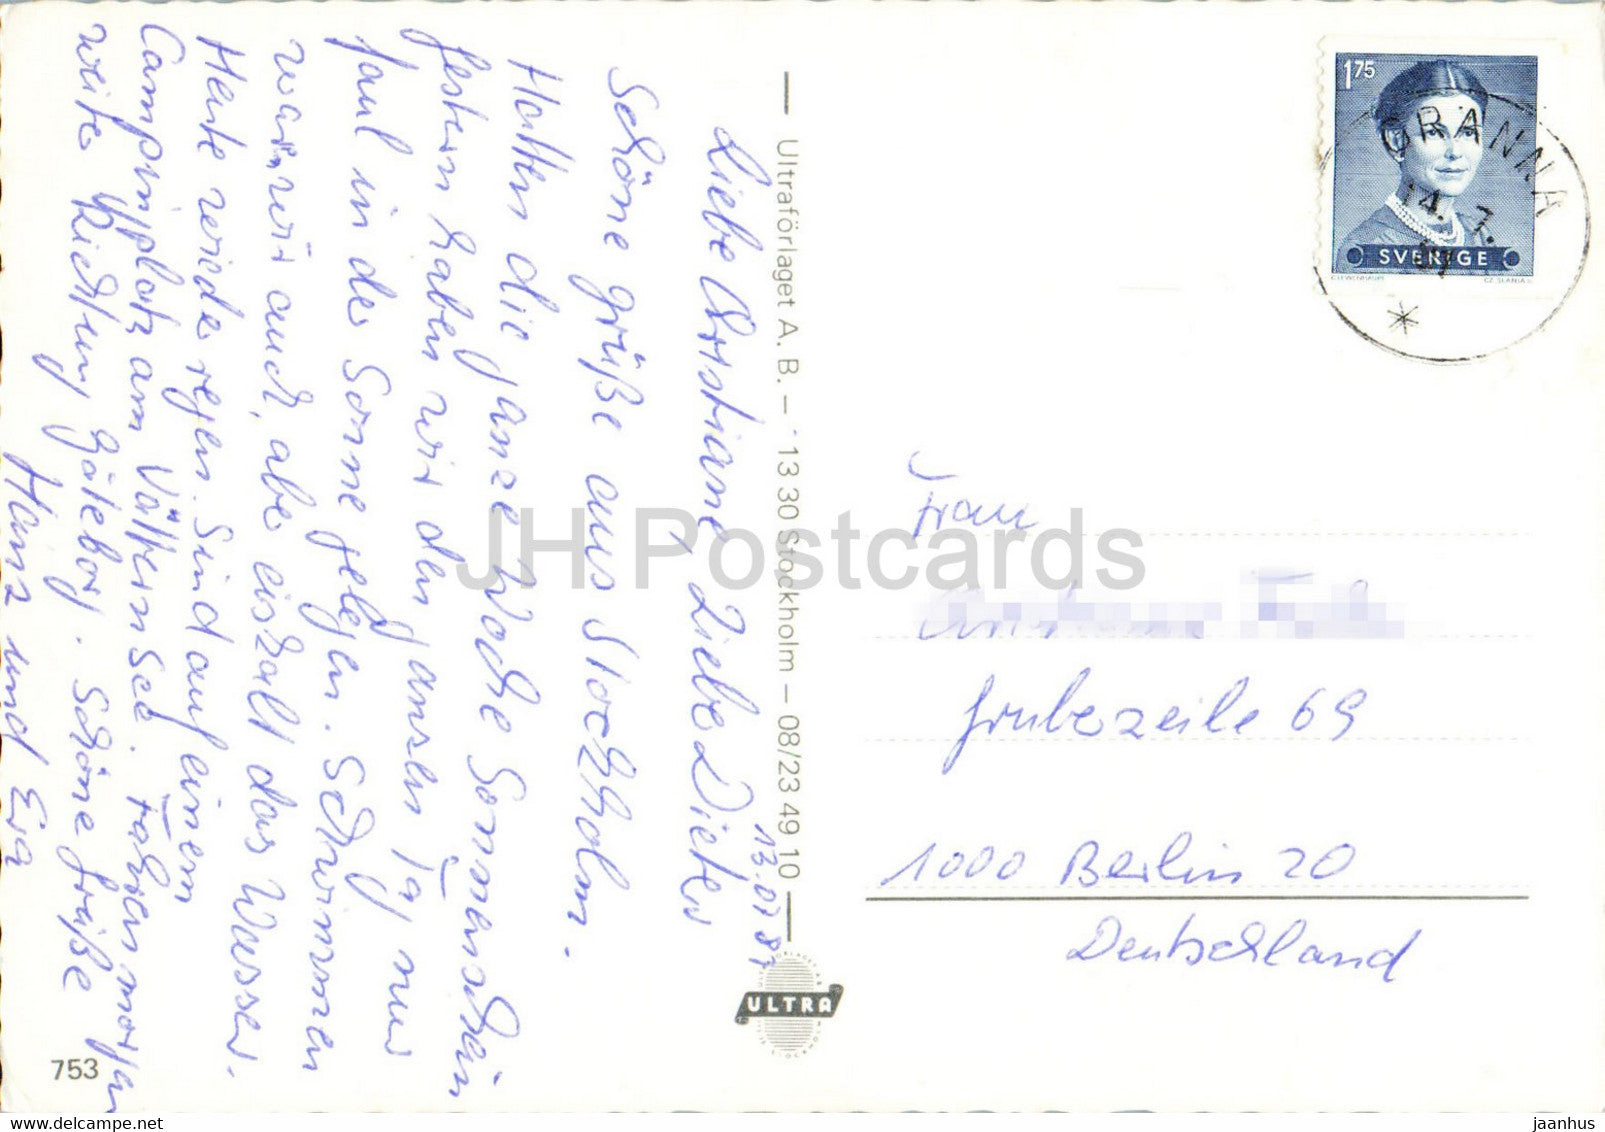 13.07.87
Liebe Christiane, Lieber Dieter
Schöne grüße aus Stockholm.
Hatten die ganze Woche Sonnenschein
gestern haben wir den ganzen Tag nur
faul in der Sonne gelegen. Schwimmen
waren wir auch, aber eiskalt das Wasser.
Heute wieder regen. Sind auf einem
Campingplatz am Vättern See. Fahren morgen
weiter Richtung Göteborg. Schöne Grüße
Hans und Eva
Ultraförlaget A. B. – 13 30 Stockholm – 08/23 49 10
ULTRA
753
1 75
SVERIGE
GRÄNNA
14. 7.
87
Frau
Grubezeile 69
1000 Berlin 20
Deutschland
JH Postcards
www.delcampe.net
jaanhus